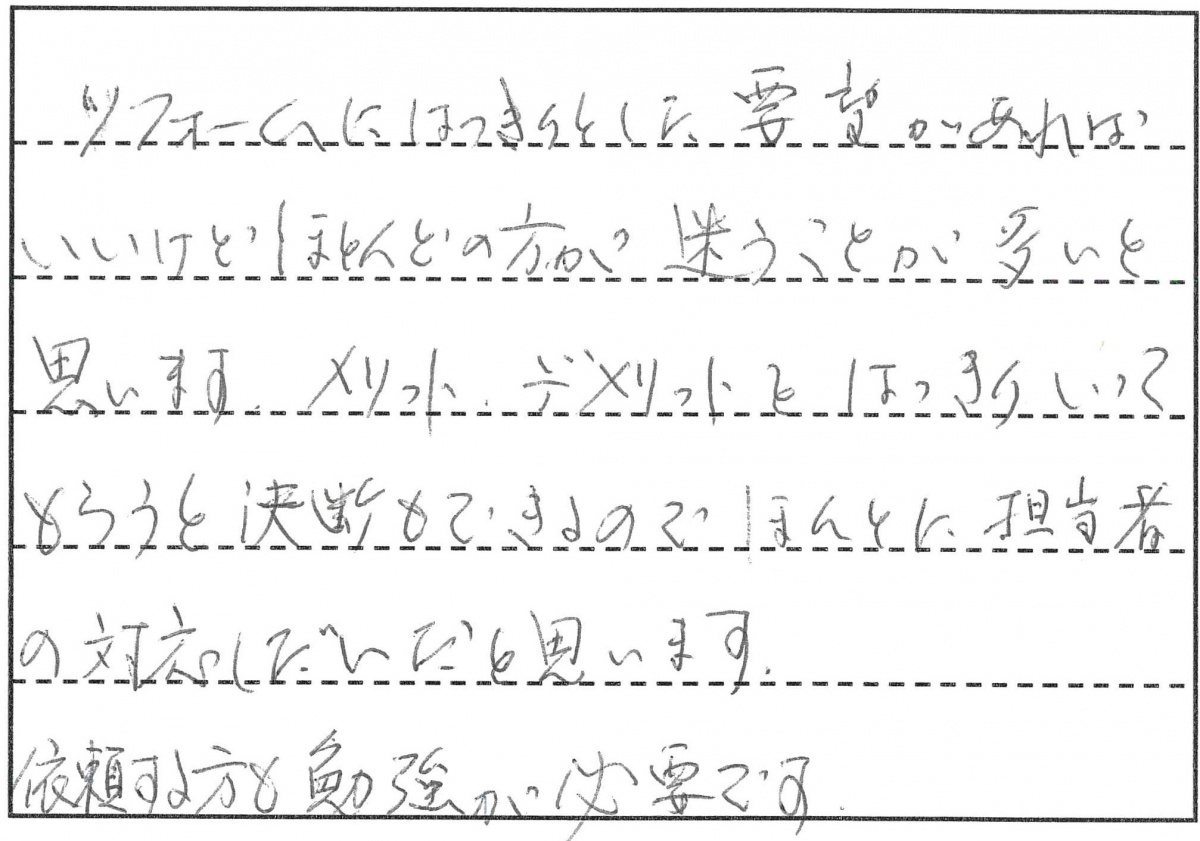 リフォームにはっきりとした要望があれば
いいけどほとんどの方が迷うことが多いと
思います、メリット、デメリットをはっきりいって
もらうと決断もできるのでほんとに担当者
の対応しだいだと思います。
依頼する方も勉強が必要です。